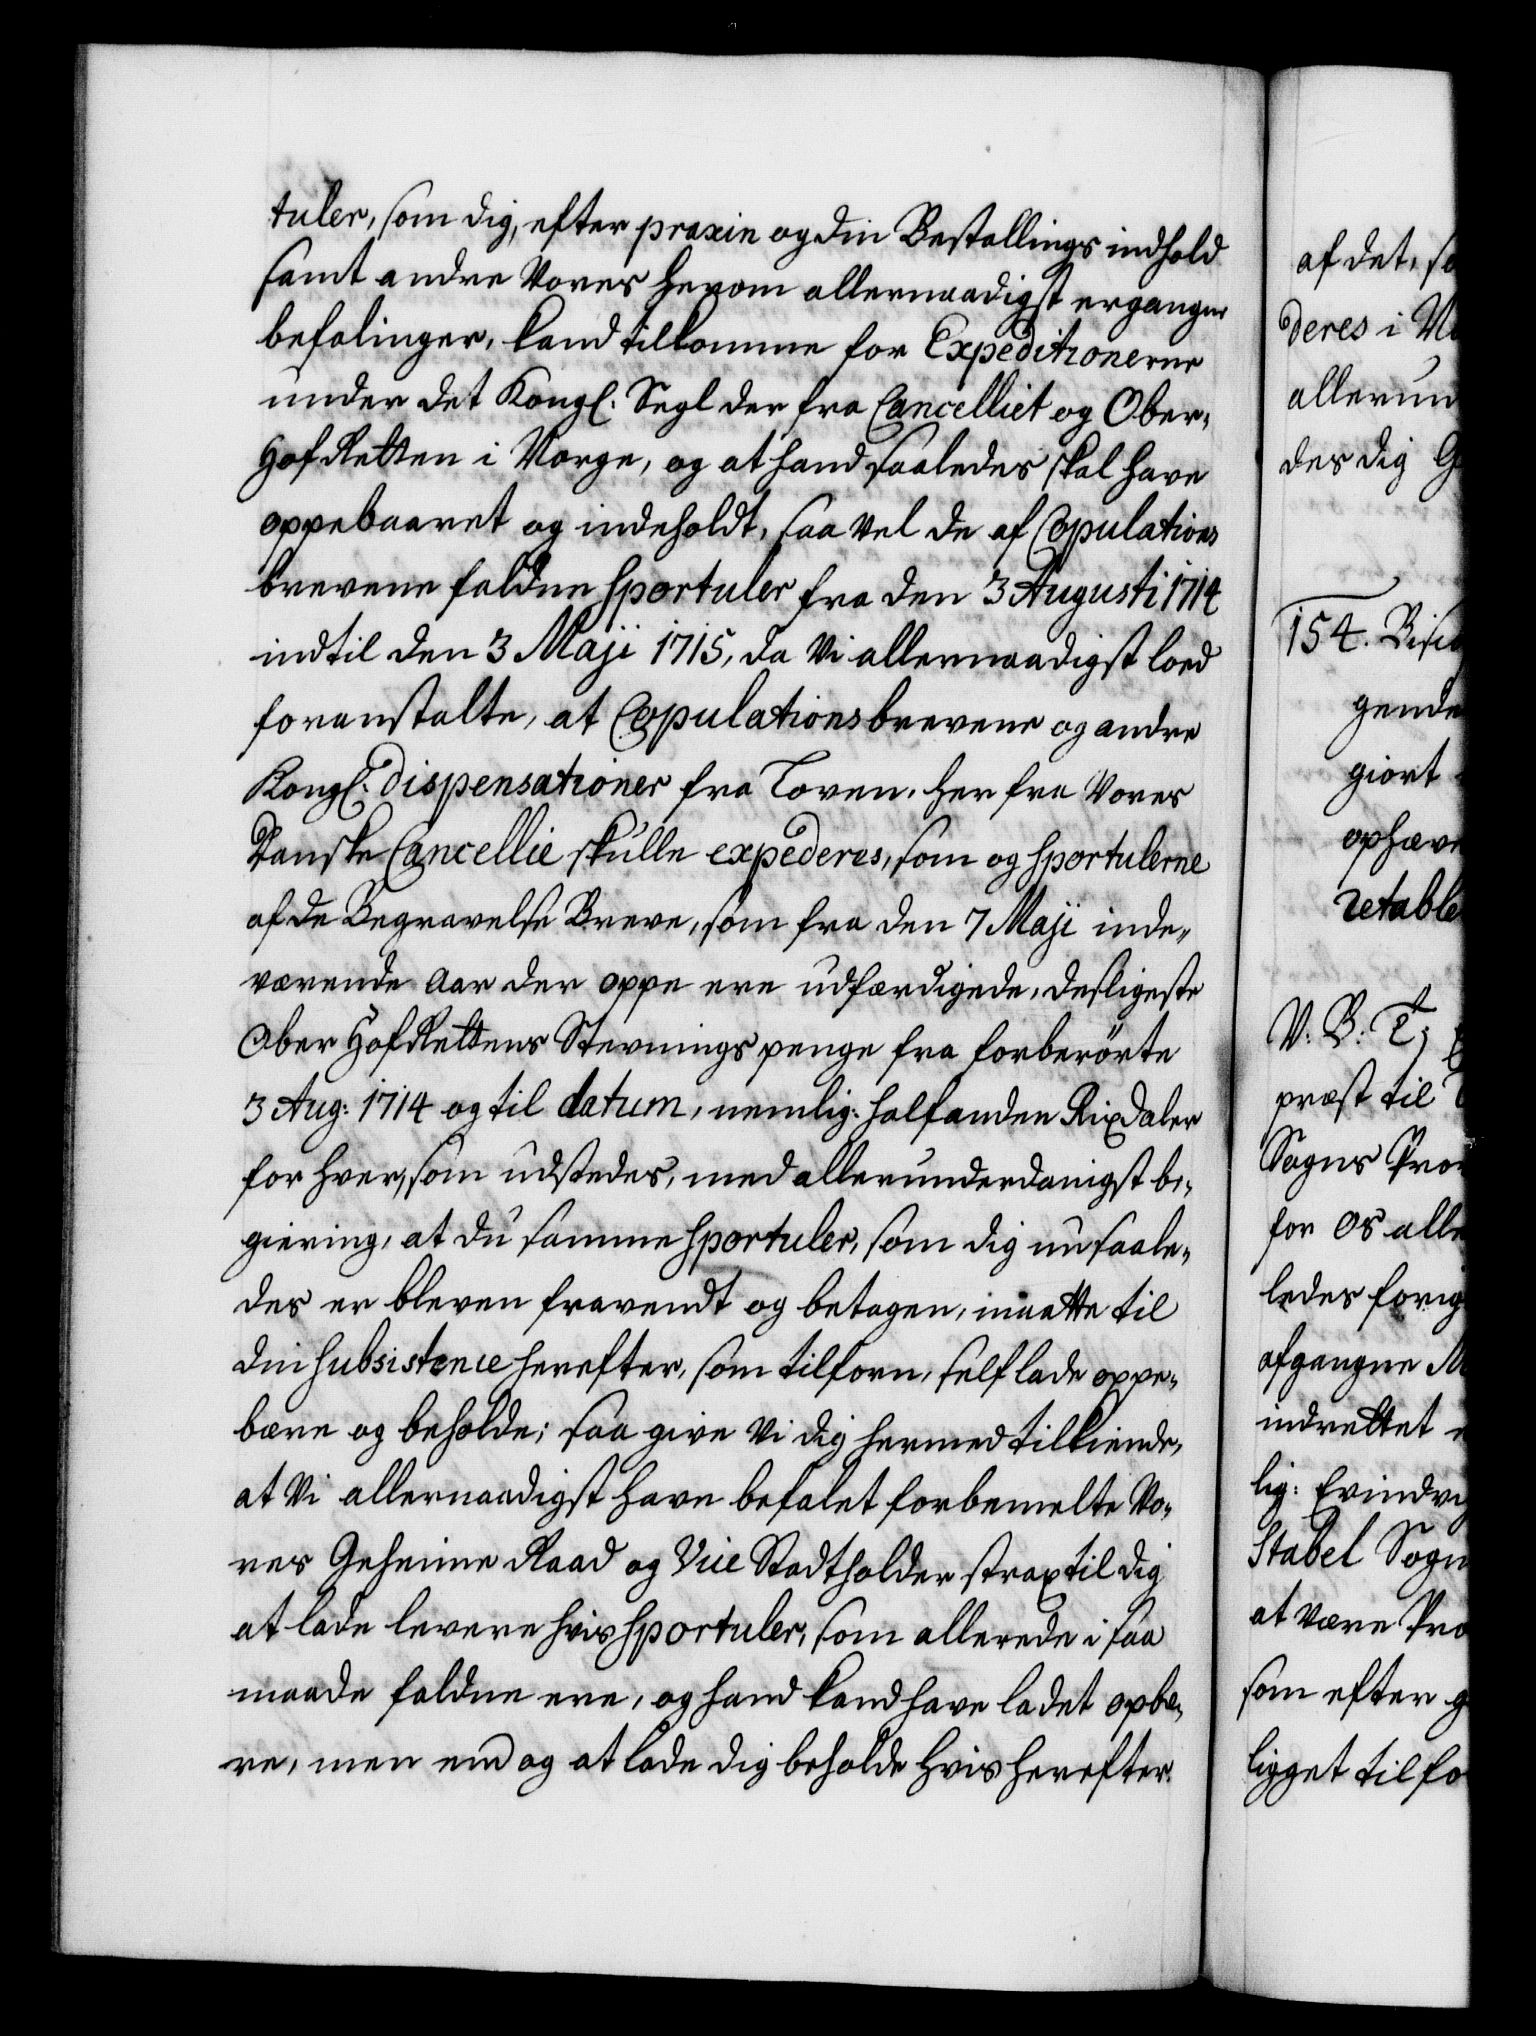 tuler, som dig, efter praxin og din Bestallings indhold
samt andre Vores herom allernaadigst ergangne
befalinger, kand tilkomme for Expeditionerne
under det Kongl: Segl der fra Cancelliet og Ober-
HofRetten i Norge, og at hand saaledes skal have
oppebaaret og indeholdt, saa vel de af Copulations
brevene faldne sportuler fra den 3 Augusti 1714
indtil den 3 Maji 1715, da Vi allernaadigst loed
foranstalte, at Copulationsbrevene og andre
Kongl: dispensationer fra Loven, her fra Vores
Danske Cancellie skulle expederes, som og sportulerne
af de Begravelse Breve, som fra den 7 Maji inde-
værende Aar der oppe ere udfærdigede, desligeste
Ober HofRettens Stevnings penge fra forberörte
3 Aug: 1714 og til datum, nemlig: halfanden Rixdaler
for hver, som udstedes, med allerunderdanigst be-
giering, at du samme sportuler, som dig nu saale-
des er bleven fravendt og betagen, maatte til
din subsistence herefter, som tilforn, self lade oppe-
bære og beholde; saa give Vi dig hermed tilkiende,
at Vi allernaadigst have befalet forbemelte Vo-
res Geheime Raad og Vice Stadtholder strax til dig
at lade levere hvis sportuler, som allerede i saa
maade faldne ere, og hand kand have ladet opbæ-
re, men end og at lade dig beholde hvis herefter
af det, so
deres i
allerun
des dig G
154.
gende
giort
ophæve
retable
V: B: T;
præst til
Sogns Pro
for Os alle
ledes forig
afgangne M
indrettet
lig: Evindvi
Stabel Sogn
at være Pro
som efter g
ligget til fo